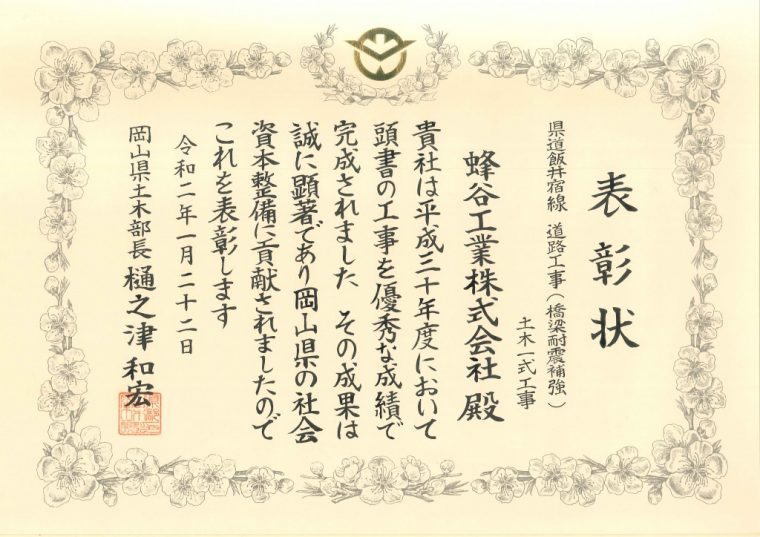 表彰状
県道飯井宿線 道路工事（橋梁耐震補強）
土木一式工事
蜂谷工業株式会社 殿
貴社は平成三十年度において
頭書の工事を優秀な成績で
完成されました その成果は
誠に顕著であり岡山県の社会
資本整備に貢献されましたので
これを表彰します
令和二年一月二十二日
岡山県土木部長 樋之津和宏